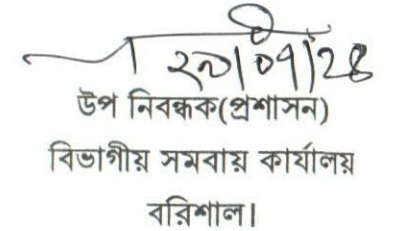 ২৯/০৭/২৪
উপ নিবন্ধক(প্রশাসন)
বিভাগীয় সমবায় কার্যালয়
বরিশাল।